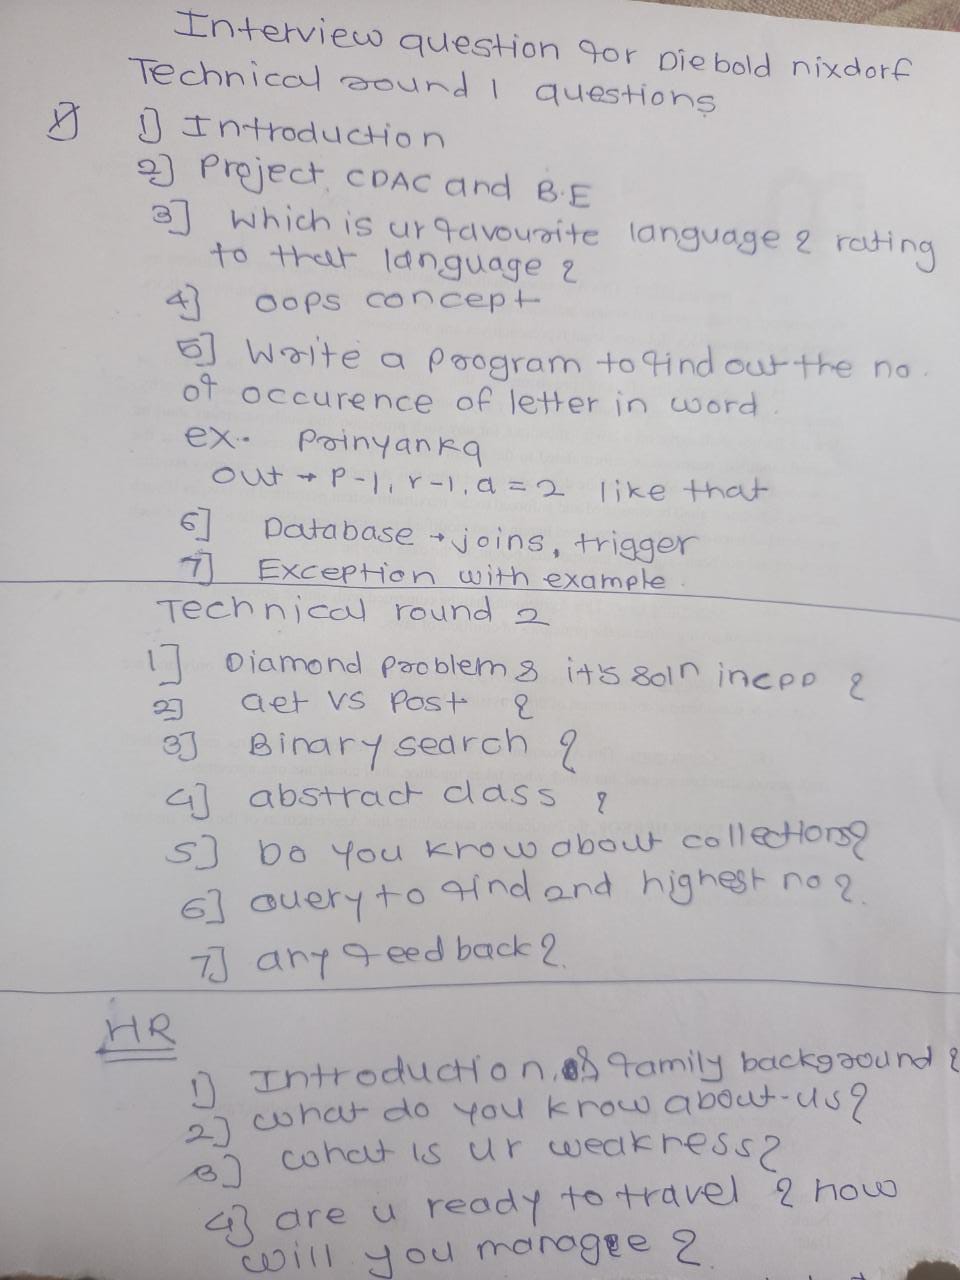 Interview question for Diebold nixdorf
Technical round 1 questions
1] Introduction
2] Project CDAC and B.E
3] which is ur favourite language ? rating
to that language ?
4] oops concept
5] Write a program to find out the no.
of occurence of letter in word.
ex.. Prinyanka
out → P-1, r-1, a = 2 like that
6] Database → joins, trigger
7] Exception with example.
Technical round 2
1] Diamond problem & it's soln in cpp ?
2] Get vs Post ?
3] Binary search ?
4] abstract class ?
5] Do you know about collections?
6] query to find 2nd highest no ?.
7] any feedback ?.
HR
1] Introduction, & family background ?
2] what do you know about-us?
3] what is ur weakness?
4] are u ready to travel ? how
will you manage ?